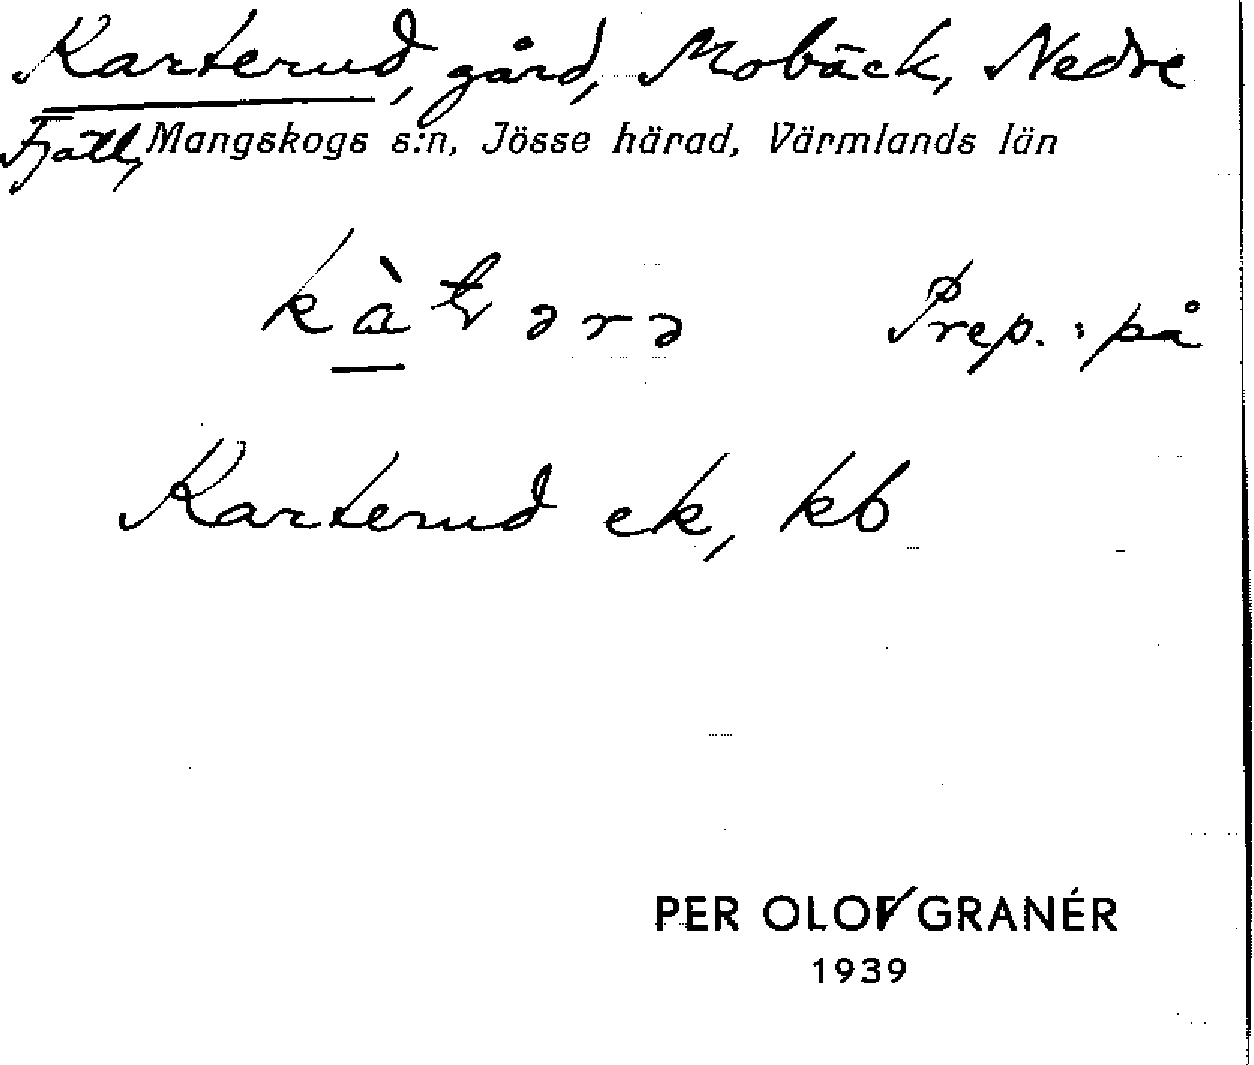 Karterud, gård, Mobäck, Nedre
Fjäll, Mangskogs s:n, Jösse härad, Värmlands län
Prep.: på
Karterud ek, kb
PER OLOF GRANÉR
1939